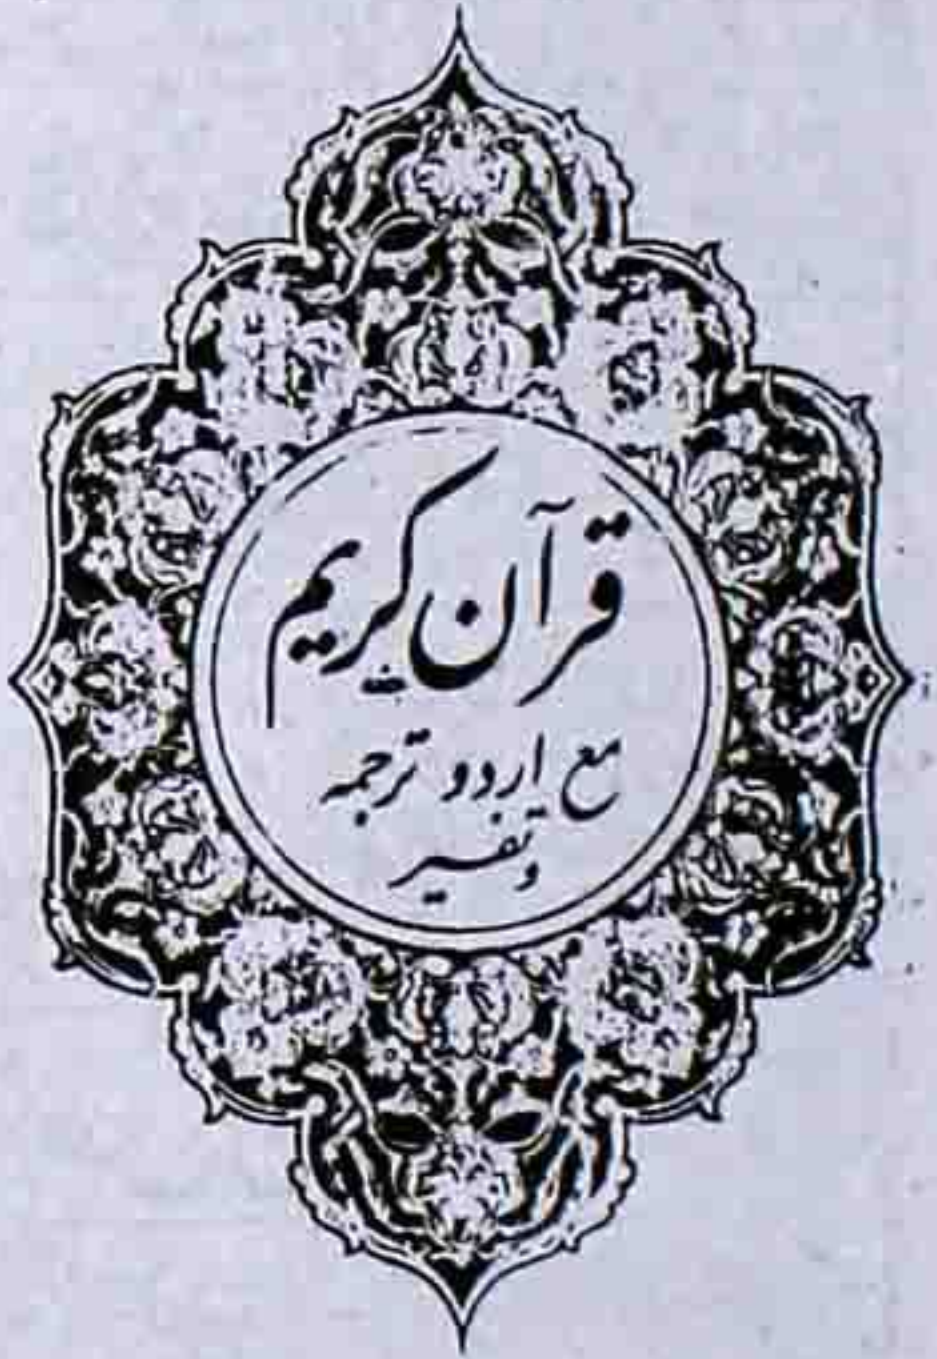 قرآن کریم
مع اردو ترجمہ
و تفسیر